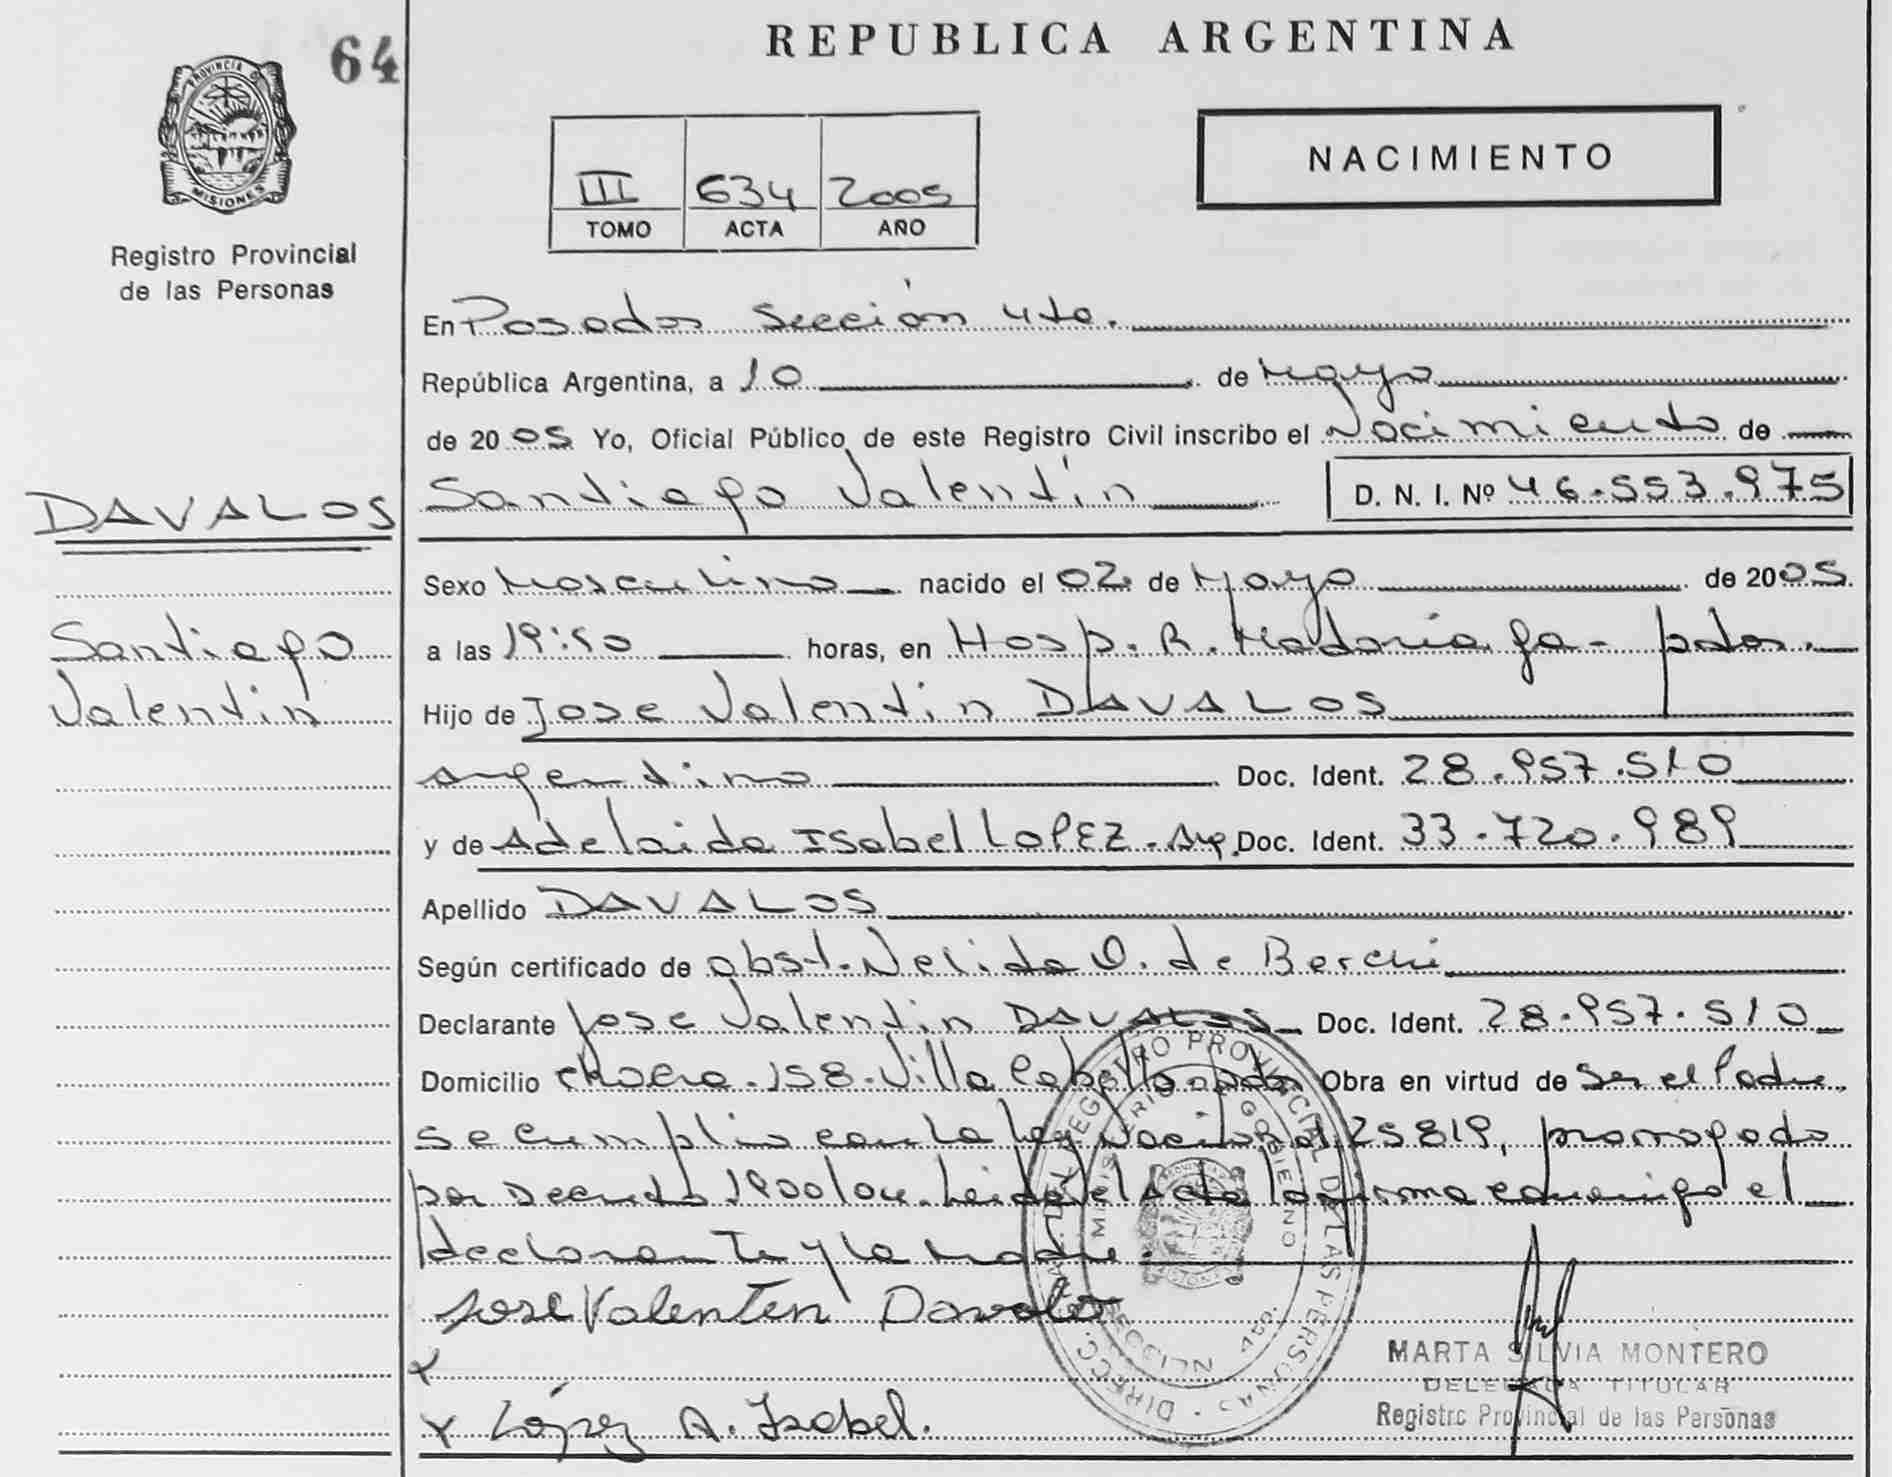 64
REPUBLICA ARGENTINA
PROVINCIA DE
MISIONES
Registro Provincial
de las Personas
III 634 2005
TOMO ACTA AÑO
NACIMIENTO
En Posadas Sección 4ta.
República Argentina, a 10 de Mayo
de 2005 Yo, Oficial Público de este Registro Civil inscribo el Nacimiento de
DAVALOS
Santiago Valentín D. N. I. Nº 46.553.975
Sexo Masculino nacido el 02 de Mayo de 2005.
Santiago
Valentín
a las 19:50 horas, en Hosp. R. Madariaga - pdas.
Hijo de Jose Valentin DAVALOS
argentino Doc. Ident. 28.957.510
y de Adelaida Isabel LOPEZ - Arg. Doc. Ident. 33.720.989
Apellido DAVALOS
Según certificado de obst. Nelida O. de Berchi
Declarante Jose Valentin DAVALOS Doc. Ident. 28.957.510
Domicilio chacra 158 - Villa Cabello pdas Obra en virtud de Ser el Padre,
se cumplio con la ley Nacional 25819, prorrogado
por Decreto 1900/04. Leida el Acta la firma conmigo el
declarante y la madre.
Jose Valenten Davalo
x
x López A. Isabel.
DIRECC. GRAL. DEL REGISTRO PROVINCIAL DE LAS PERSONAS
MINISTERIO DE GOBIERNO
SECCION 4ta.
MARTA SILVIA MONTERO
DELEGADA TITULAR
Registro Provincial de las Personas